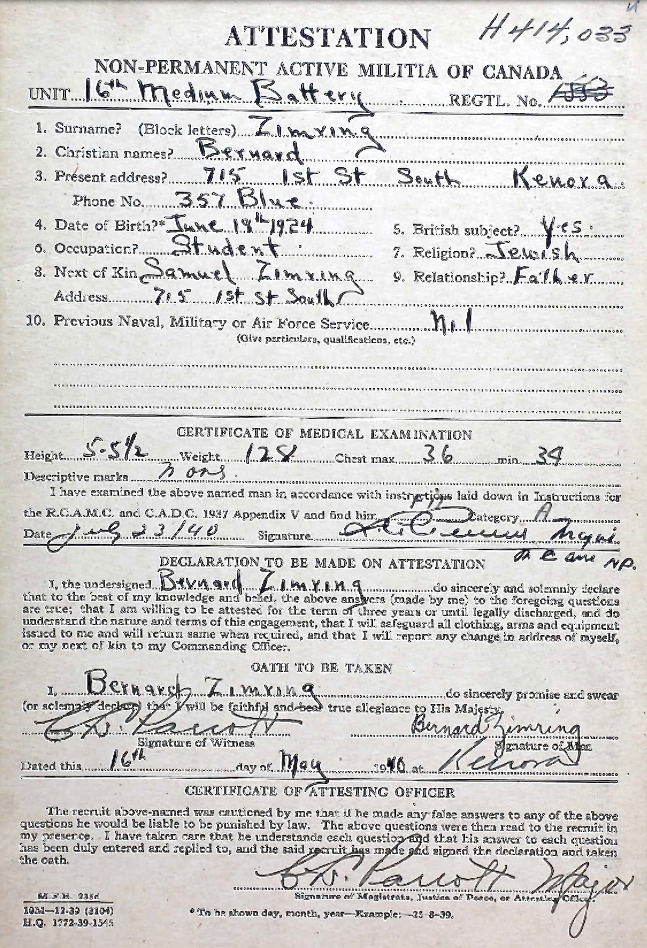 H414,033
ATTESTATION
NON-PERMANENT ACTIVE MILITIA OF CANADA
UNIT 16th Medium Battery REGTL. No.
1. Surname? (Block letters) Zimring
2. Christian names? Bernard
3. Present address? 715 1st St South Kenora
Phone No. 357 Blue.
4. Date of Birth?* June 18th 1924 5. British subject? Yes.
6. Occupation? Student 7. Religion? Jewish
8. Next of Kin Samuel Zimring 9. Relationship? Father
Address 715 1st St South
10. Previous Naval, Military or Air Force Service Nil
(Give particulars, qualifications, etc.)
CERTIFICATE OF MEDICAL EXAMINATION
Height 5-5½ Weight 128 Chest max. 36 min. 34
Descriptive marks none
I have examined the above named man in accordance with instructions laid down in Instructions for
the R.C.A.M.C. and C.A.D.C. 1937 Appendix V and find him fit Category A
Date July 23/40 Signature
DECLARATION TO BE MADE ON ATTESTATION
I, the undersigned Bernard Zimring do sincerely and solemnly declare
that to the best of my knowledge and belief, the above answers (made by me) to the foregoing questions
are true; that I am willing to be attested for the term of three years or until legally discharged, and do
understand the nature and terms of this engagement, that I will safeguard all clothing, arms and equipment
issued to me and will return same when required, and that I will report any change in address of myself,
or my next of kin to my Commanding Officer.
OATH TO BE TAKEN
I, Bernard Zimring do sincerely promise and swear
(or solemnly declare) that I will be faithful and bear true allegiance to His Majesty.
C.W. Parrott Bernard Zimring
Signature of Witness Signature of Man
Dated this 16th day of May 1940 at Kenora
CERTIFICATE OF ATTESTING OFFICER
The recruit above-named was cautioned by me that if he made any false answers to any of the above
questions he would be liable to be punished by law. The above questions were then read to the recruit in
my presence. I have taken care that he understands each question and that his answer to each question
has been duly entered and replied to, and the said recruit has made and signed the declaration and taken
the oath.
C.W. Parrott Major
Signature of Magistrate, Justice of Peace, or Attesting Officer.
M.F.B. 235d
103M-12-39 (3104)
H.Q. 1772-39-1545
* To be shown day, month, year—Example:—25-8-39.